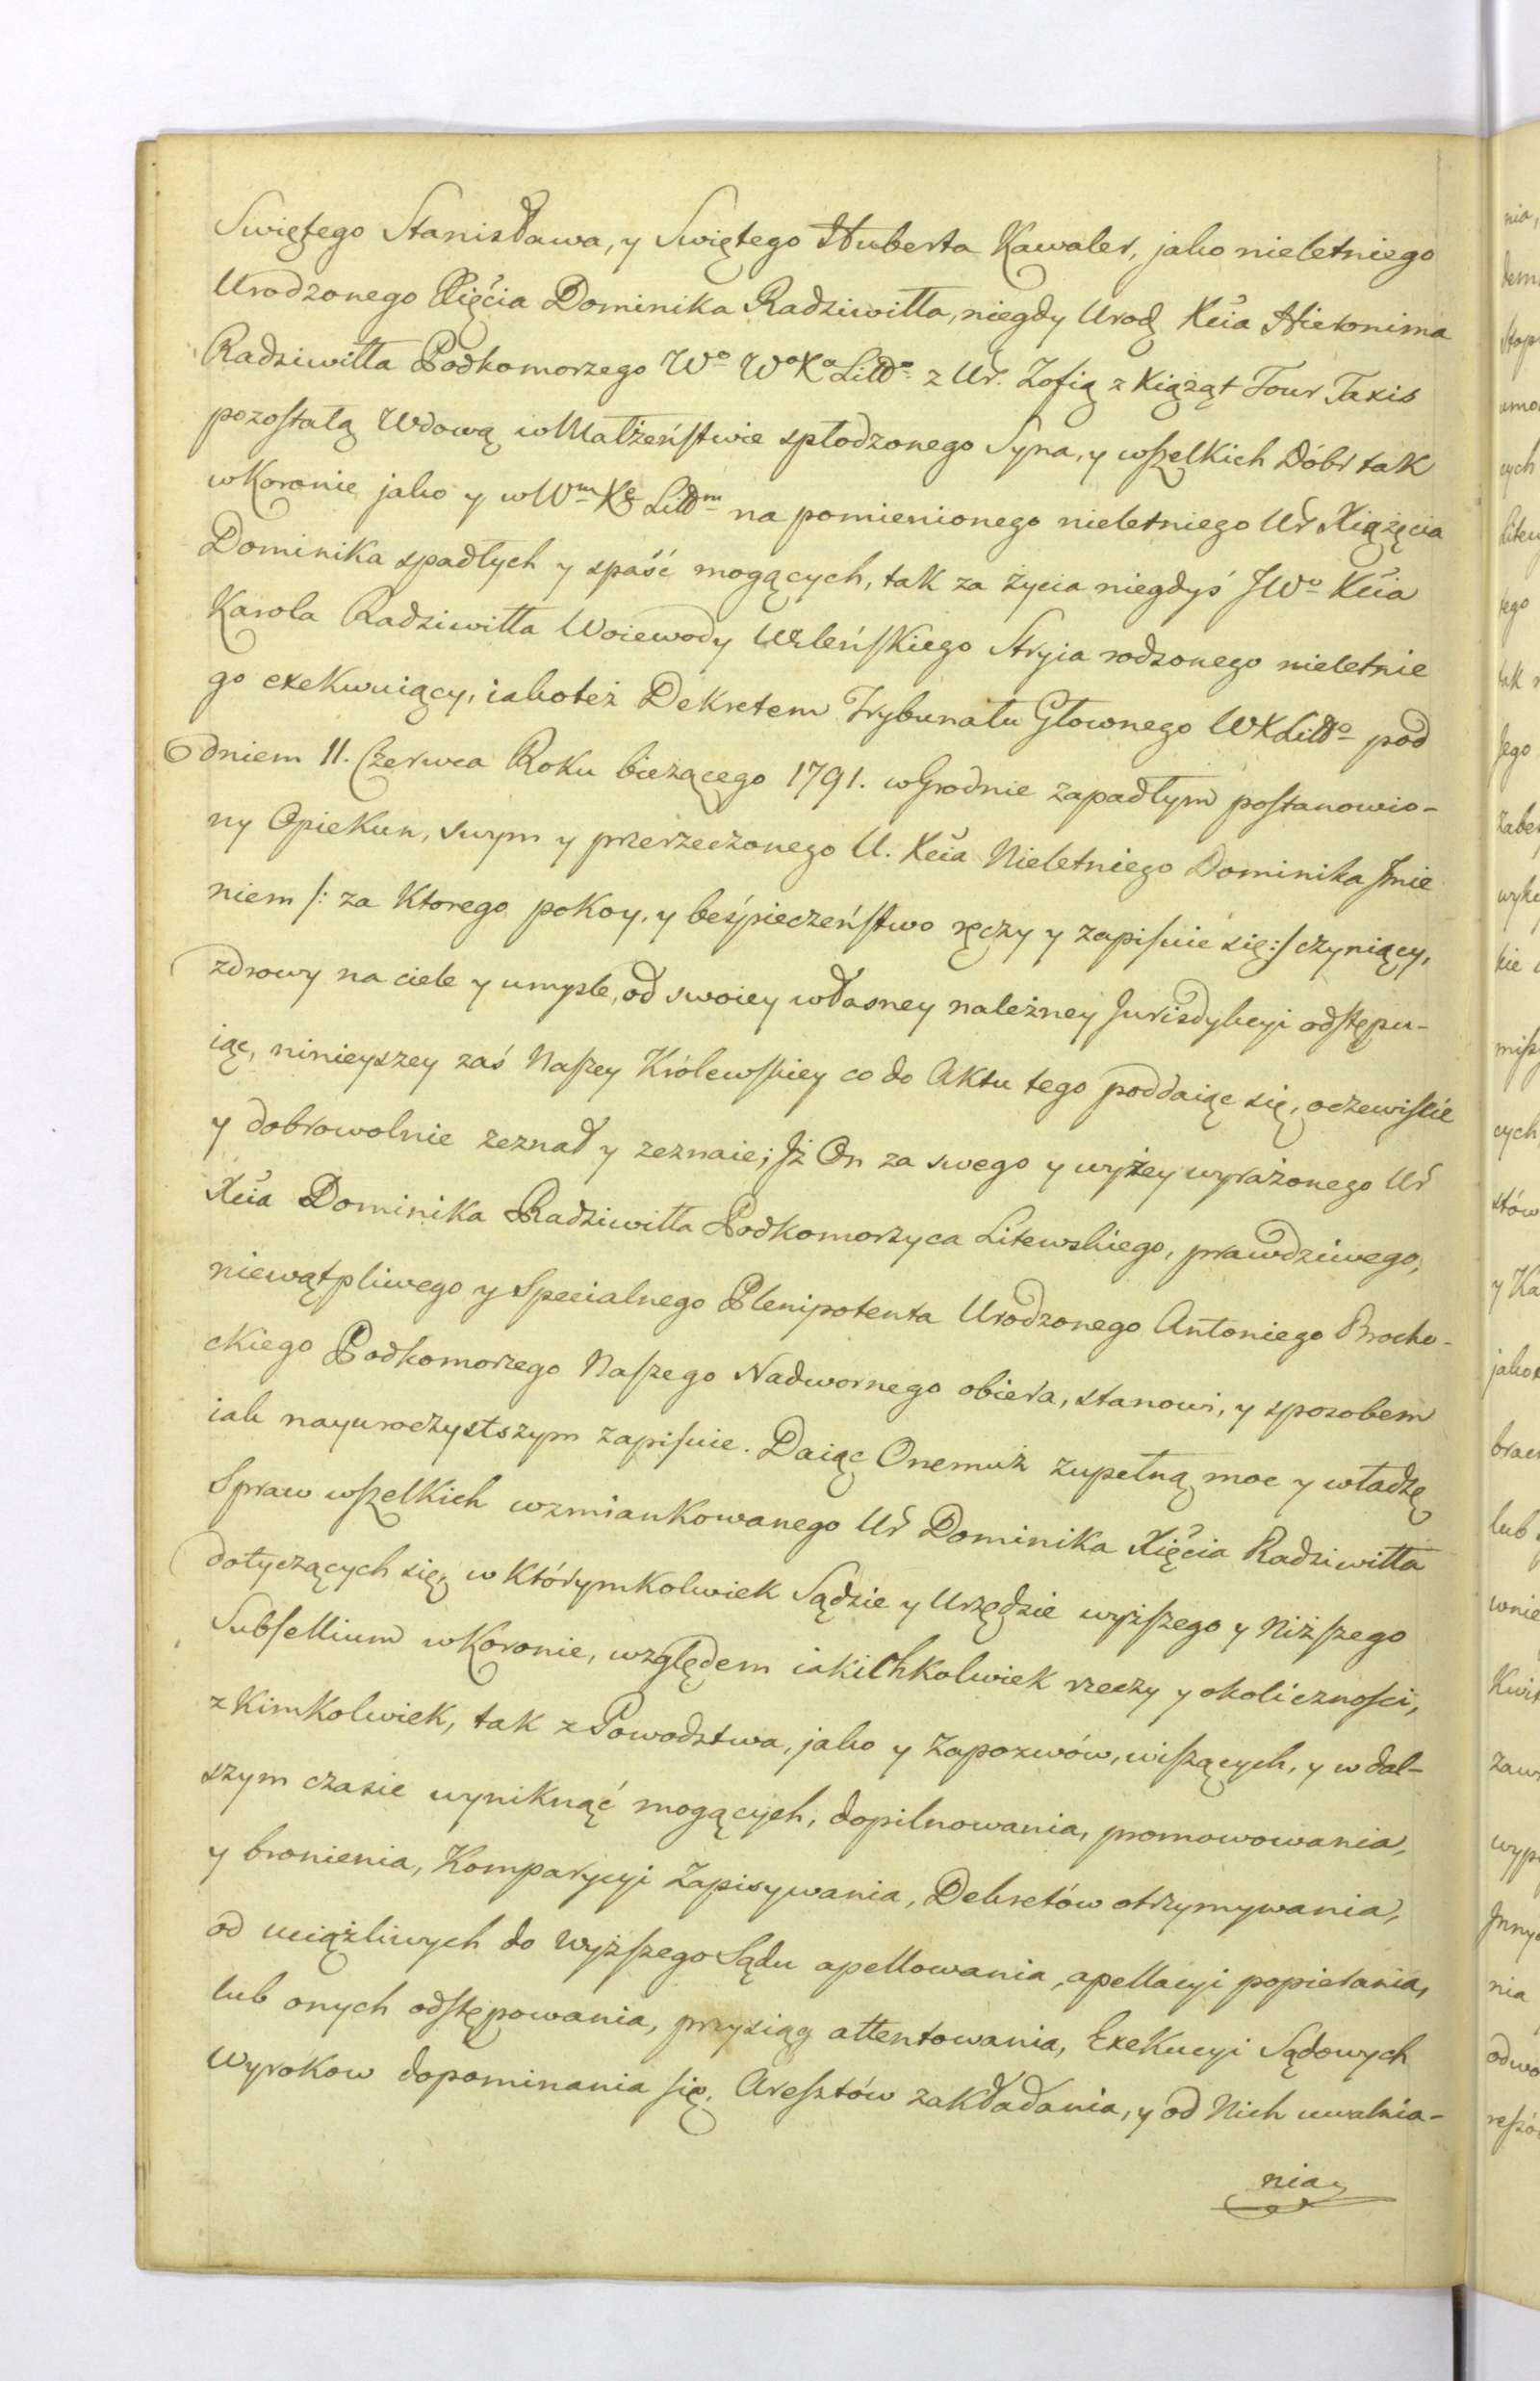 Swiętego Stanisława, y Swiętego Huberta Kawaler, jako nieletniego
Urodzonego Xięcia Dominika Radziwiłła, niegdy Urodz Xcia Hieronima
Radziwiłła Podkomorzego Wo Wo Ko Littgo z Ur. Zofią z Xiążąt Tour Taxis
pozostałą Wdową w Małżeństwie spłodzonego Syna, y wszelkich Dóbr tak
w Koronie jako y w Wm Xe Littm na pomienionego nieletniego Ur Xiążęcia
Dominika spadłych y spaść mogących, tak za życia niegdyś JWo Xcia
Karola Radziwiłła Woiewody Wileńskiego Stryia rodzonego nieletnie
go exekwuiący, iakoteż Dekretem Trybunału Głownego WXLittgo pod
dniem 11. Czerwca Roku bieżącego 1791. w Grodnie zapadłym postanowio-
ny Opiekun, swym y przerzeczonego U. Xcia Nieletniego Dominika Jmie
niem /: za Ktorego pokoy, y beśpieczeństwo ręczy y zapisuie się :/ czyniący,
zdrowy na ciele y umyśle, od swoiey własney należney Jurisdykcyi odstępu-
iąc, ninieyszey zaś Naszey Królewskiey co do Aktu tego poddaiąc się, oczewiście
y dobrowolnie zeznał y zeznaie; Jż On za swego y wyżey wyrażonego Ur
Xcia Dominika Radziwiłła Podkomorzyca Litewskiego, prawdziwego,
niewątpliwego y Specialnego Plenipotenta Urodzonego Antoniego Brocho-
ckiego Podkomorzego Naszego Nadwornego obiera, stanowi, y sposobem
iak nayuroczystszym zapisuie. Daiąc Onemuż zupełną moc y władzę
Spraw wszelkich wzmiankowanego Ur Dominika Xięcia Radziwiłła
dotyczących się, w Którymkolwiek Sądzie y Urzędzie wyższego y Niższego
Subsellium w Koronie, względem iakichkolwiek rzeczy y okoliczności,
z Kimkolwiek, tak z Powodztwa, jako y Zapozwów, wiszących, y w dal-
szym czasie wyniknąć mogących, dopilnowania, promowowania,
y bronienia, Komparycyi Zapisywania, Dekretów otrzymywania,
od uciążliwych do wyższego Sądu apellowania, apellacyi popierania,
lub onych odstępowania, przysiąg attentowania, Exekucyi Sądowych
Wyrokow dopominania się. Aresztów zakładania, y od Nich uwalnia-
nia,